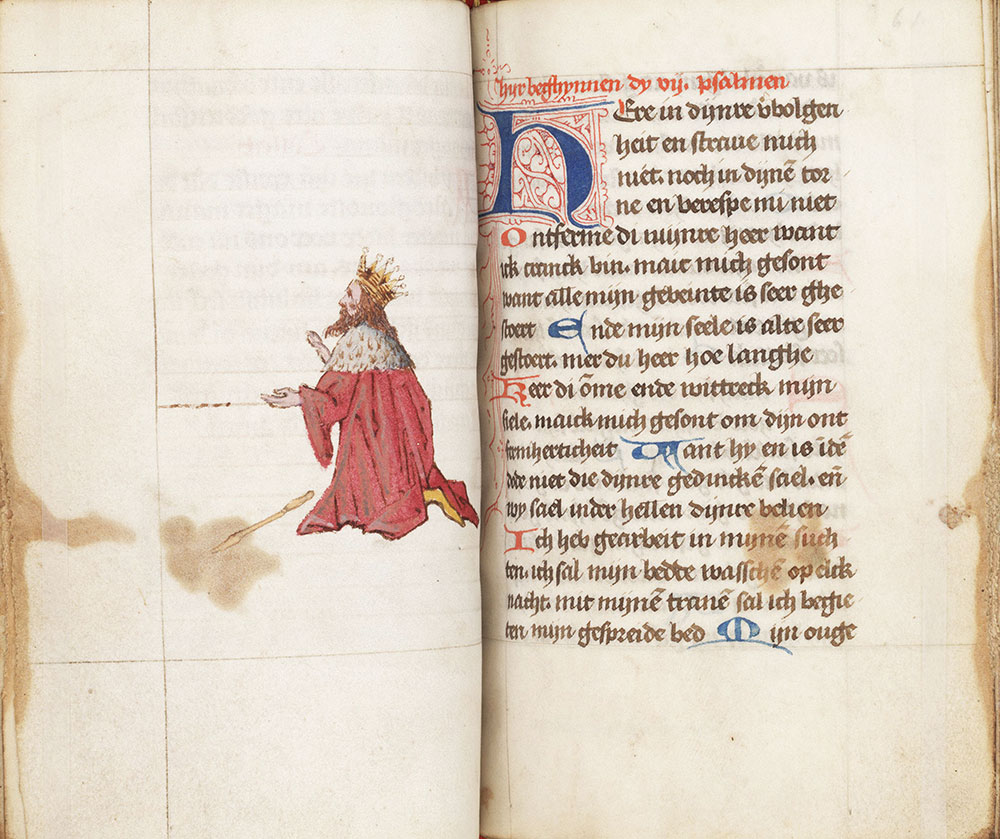 hyr beghynnen dy vij. psalmen
HEre in dijnre v̄bolgen
heit en straue mich
niet. noch in dijnē tor
ne en berespe mi niet
Ontferme di mijnre heer want
ick cranck bin. maic mich gesont
want alle mijn gebeinte is seer ghe
stoert Ende mijn seele is alte seer
gestoert. mer du heer hoe langhe
Keer di ōme ende wittreck mijn
siele. maick mich gesont om dijn ont
fermherticheit Want hy en is īdē
dode niet die dijnre gedinckē sael. en̄
wy sael inder hellen dijnre belien
Ich heb gearbeit in mynē such
ten. ich sal mijn bedde wasschē op elck
nacht. mit mijnē tranē sal ich begie
ten mijn gespreide bed Mijn ouge